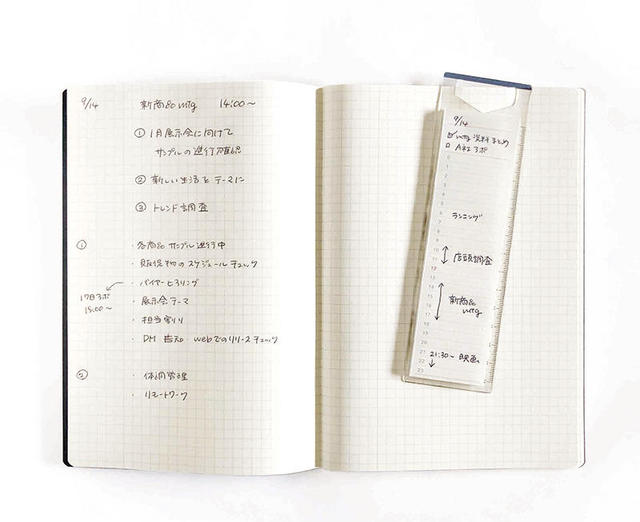 9/14 新商品mtg 14:00～
① 1月展示会に向けて
サンプルの進行確認
② 新しい生活をテーマに
③ トレンド調査
①
・各商品サンプル進行中
・販促物のスケジュールチェック
・バイヤーヒアリング
17日アポ
15:00～
・展示会テーマ
・担当割り
・DM 告知 webでのリリースチェック
②
・体調管理
・リモートワーク
9/14
☑ mtg 資料まとめ
□ A社アポ
6
7
8
9
10
11
12
13
14
15
16
17
18
19
20
21
22
23
ランニング
店頭調査
新商品
mtg
21:30～ 映画